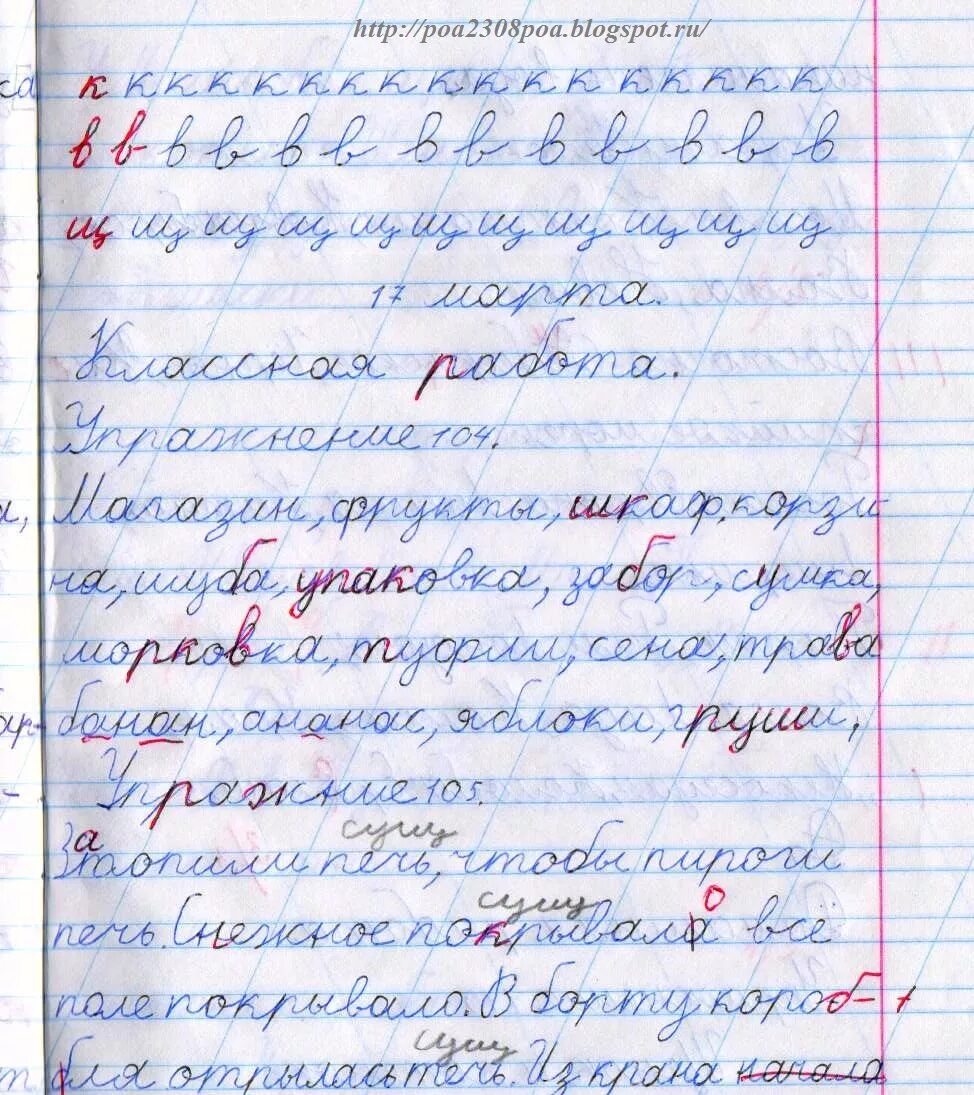 http://poa2308poa.blogspot.ru/
ка к к к к к к к к к к к к к к к к к
в в в в в в в в в в в в в
щ щ щ щ щ щ щ щ щ щ щ
17 марта.
Классная работа.
Упражнение 104.
Магазин, фрукты, шкаф, корзи
на, шуба, упаковка, забор, сумка,
морковка, туфли, сена, трава
банан, ананас, яблоки, груши,
Упражние 105.
сущ
Затопили печь, чтобы пироги
сущ о
печь. Снежное покрывала всё
поле покрывало. В борту короб-
сущ
бля отрылась течь. Из крана начала